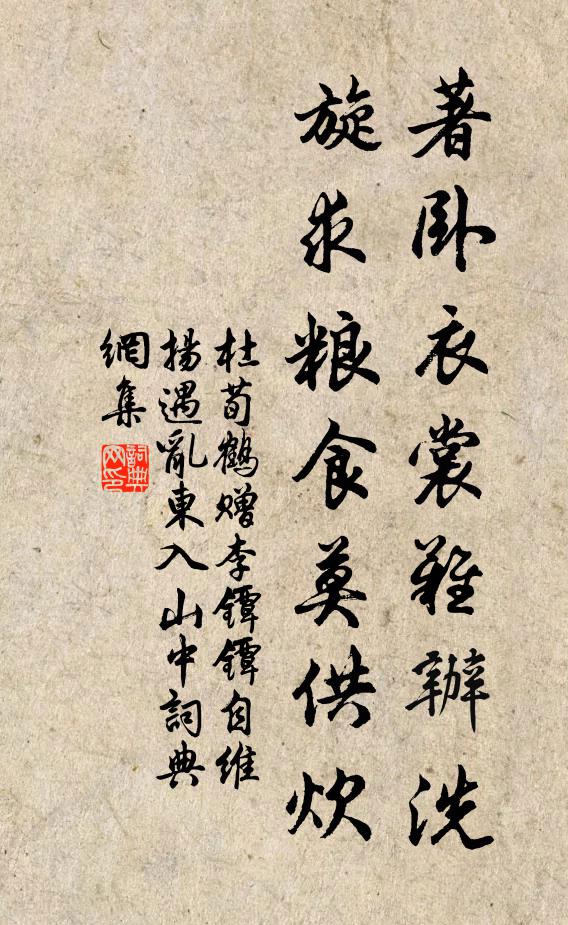 著卧衣裳難辦洗
旋求粮食莫供炊
杜荀鶴贈李鐔鐔自維
揚遇亂東入山中詞典
網集
詞典
网印